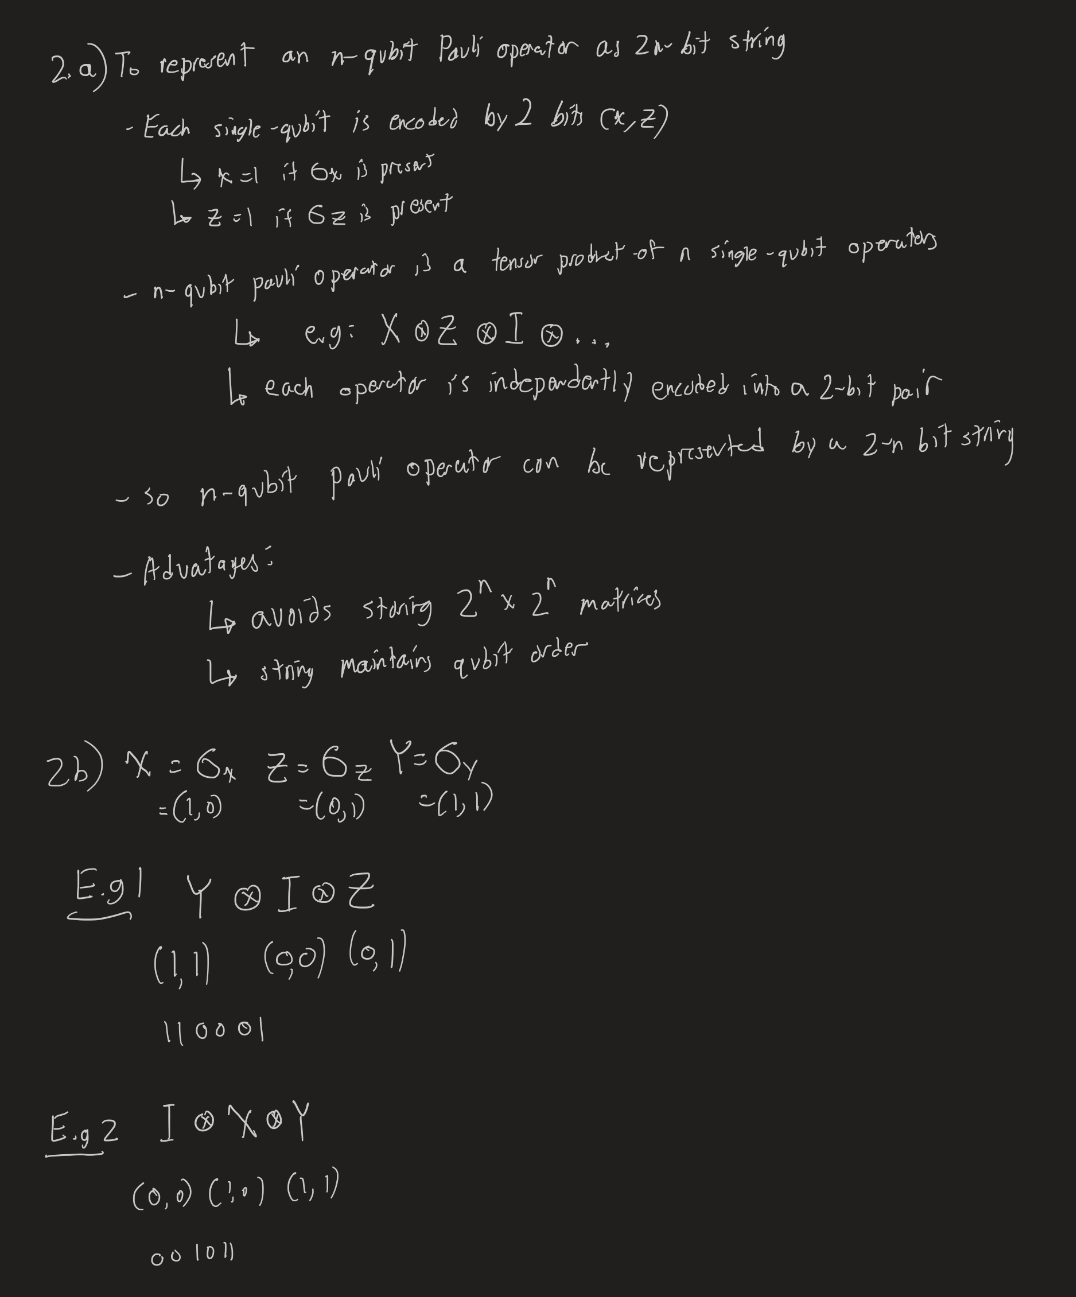 2.a) To represent an n-qubit Pauli operator as 2n-bit string
- Each single-qubit is encoded by 2 bits (x,z)
↳ x=1 if σx is present
↳ z=1 if σz is present
- n-qubit pauli operator is a tensor product of n single-qubit operators
↳ e.g: X ⊗ Z ⊗ I ⊗ ...
↳ each operator is independently encoded into a 2-bit pair
- so n-qubit pauli operator can be represented by a 2-n bit string
- Advatages:
↳ avoids storing 2ⁿ x 2ⁿ matrices
↳ string maintains qubit order
2b) X = σx Z = σz Y = σy
=(1,0) =(0,1) =(1,1)
E.g 1 Y ⊗ I ⊗ Z
(1,1) (0,0) (0,1)
110001
E.g 2 I ⊗ X ⊗ Y
(0,0) (1,0) (1,1)
001011